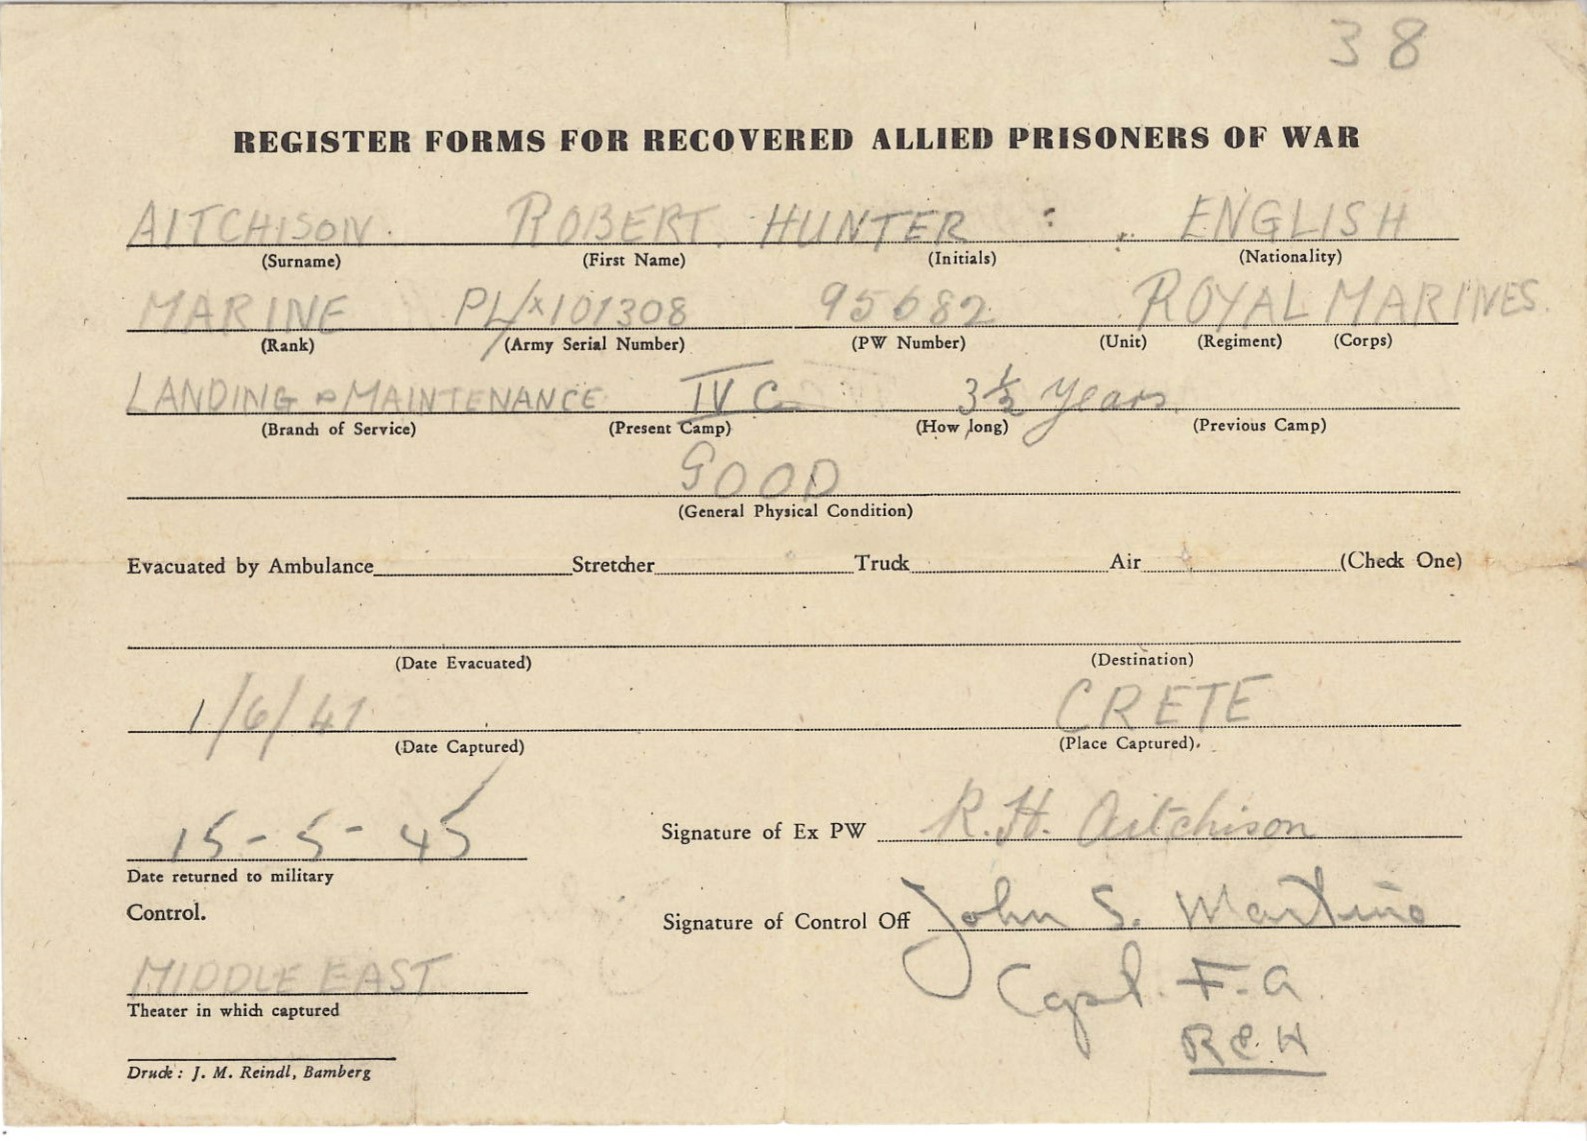 38
REGISTER FORMS FOR RECOVERED ALLIED PRISONERS OF WAR
AITCHISON. ROBERT. HUNTER ENGLISH
(Surname) (First Name) (Initials) (Nationality)
MARINE PL/X101308 95682 ROYAL MARINES.
(Rank) (Army Serial Number) (PW Number) (Unit) (Regiment) (Corps)
LANDING & MAINTENANCE IV C 3½ Years.
(Branch of Service) (Present Camp) (How long) (Previous Camp)
GOOD
(General Physical Condition)
Evacuated by Ambulance Stretcher Truck Air (Check One)
(Date Evacuated) (Destination)
1/6/41 CRETE
(Date Captured) (Place Captured).
15-5-45 Signature of Ex PW R.H. Aitchison
Date returned to military
Control. Signature of Control Off John S. Martino
MIDDLE EAST Capt. F.A.
Theater in which captured
Druck: J. M. Reindl, Bamberg